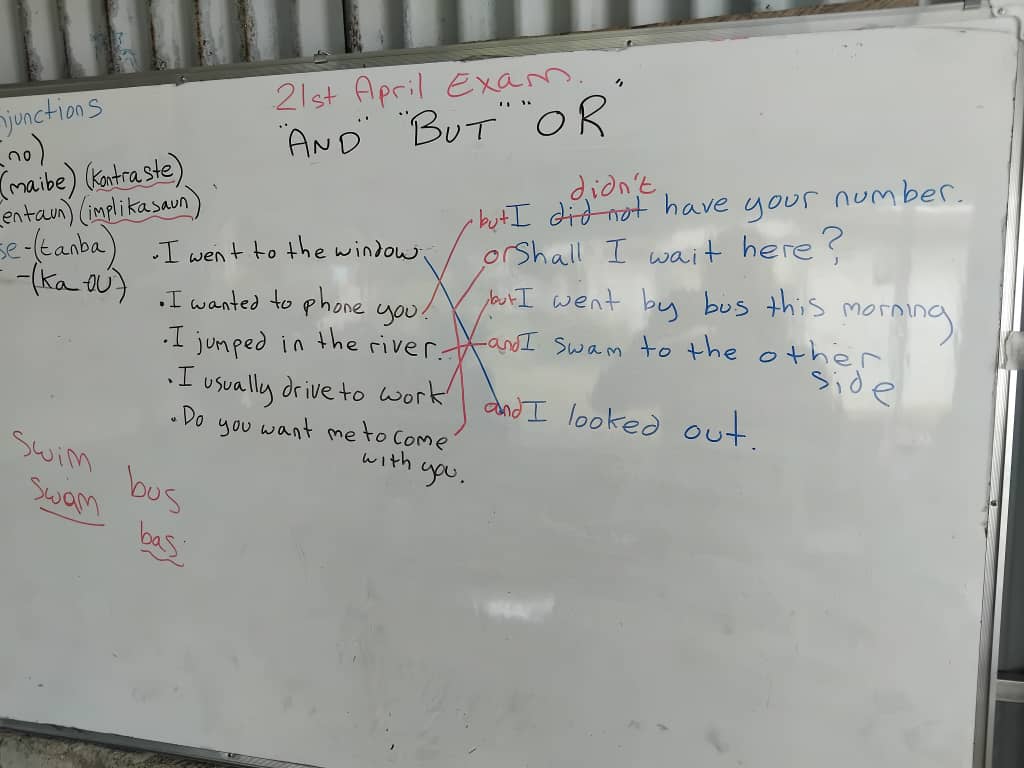 njunctions
no)
(maibe) (kontraste)
entaun) (implikasaun)
se-(tanba)
-(ka-ou)
21st April Exam.
"AND" "BUT" "OR"
.I went to the window
.I wanted to phone you.
.I jumped in the river.
.I usually drive to work
.Do you want me to come
with you.
didn't
but I did not have your number.
or Shall I wait here?
but I went by bus this morning
and I swam to the other
side
and I looked out.
swim
swam
bus
bas